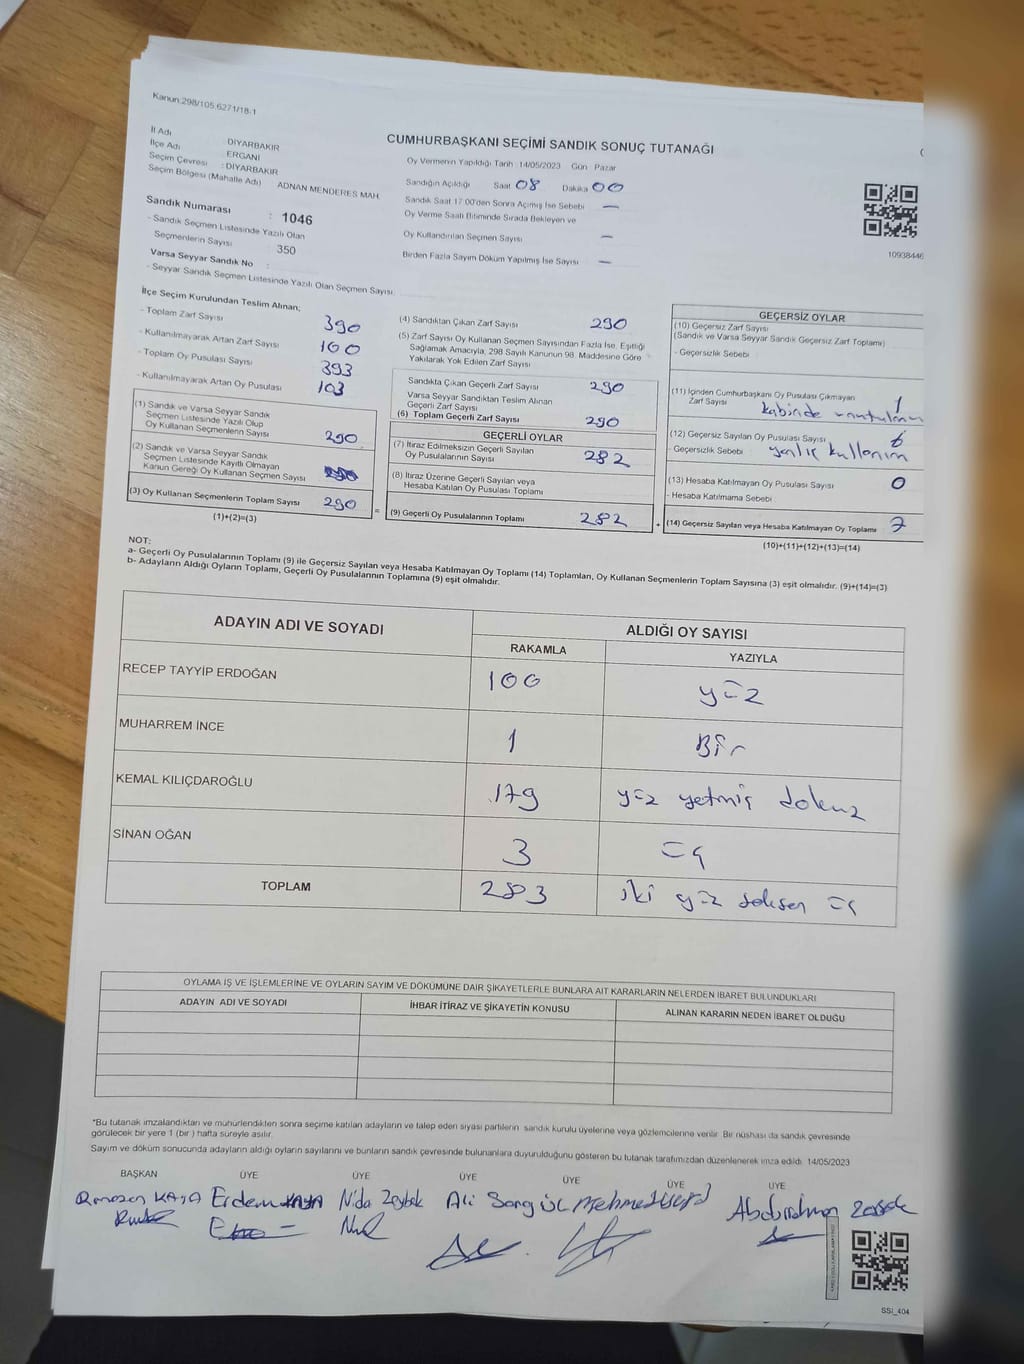 Kanun:298/105,6271/18-1
CUMHURBAŞKANI SEÇİMİ SANDIK SONUÇ TUTANAĞI
İl Adı DİYARBAKIR
İlçe Adı ERGANİ
Seçim Çevresi : DİYARBAKIR
Seçim Bölgesi (Mahalle Adı) ADNAN MENDERES MAH.
Sandık Numarası : 1046
- Sandık Seçmen Listesinde Yazılı Olan
Seçmenlerin Sayısı : 350
Varsa Seyyar Sandık No :
- Seyyar Sandık Seçmen Listesinde Yazılı Olan Seçmen Sayısı
Oy Vermenin Yapıldığı Tarih : 14/05/2023 Gün : Pazar
Sandığın Açıldığı Saat 08 Dakika 00
Sandık Saat 17:00'den Sonra Açılmış İse Sebebi —
Oy Verme Saati Bitiminde Sırada Bekleyen ve
Oy Kullandırılan Seçmen Sayısı —
Birden Fazla Sayım Döküm Yapılmış İse Sayısı —
10938446
İlçe Seçim Kurulundan Teslim Alınan;
- Toplam Zarf Sayısı 390
- Kullanılmayarak Artan Zarf Sayısı 100
- Toplam Oy Pusulası Sayısı 393
- Kullanılmayarak Artan Oy Pusulası 103
(1) Sandık ve Varsa Seyyar Sandık
Seçmen Listesinde Yazılı Olup
Oy Kullanan Seçmenlerin Sayısı 290
(2) Sandık ve Varsa Seyyar Sandık
Seçmen Listesinde Kayıtlı Olmayan
Kanun Gereği Oy Kullanan Seçmen Sayısı
(3) Oy Kullanan Seçmenlerin Toplam Sayısı 290
(1)+(2)=(3)
(4) Sandıktan Çıkan Zarf Sayısı 290
(5) Zarf Sayısı Oy Kullanan Seçmen Sayısından Fazla İse, Eşitliği
Sağlamak Amacıyla, 298 Sayılı Kanunun 98. Maddesine Göre
Yakılarak Yok Edilen Zarf Sayısı
Sandıkta Çıkan Geçerli Zarf Sayısı 290
Varsa Seyyar Sandıktan Teslim Alınan
Geçerli Zarf Sayısı
(6) Toplam Geçerli Zarf Sayısı 290
GEÇERLİ OYLAR
(7) İtiraz Edilmeksizin Geçerli Sayılan
Oy Pusulalarının Sayısı 282
(8) İtiraz Üzerine Geçerli Sayılan veya
Hesaba Katılan Oy Pusulası Toplamı
= (9) Geçerli Oy Pusulalarının Toplamı 282 +
GEÇERSİZ OYLAR
(10) Geçersiz Zarf Sayısı
(Sandık ve Varsa Seyyar Sandık Geçersiz Zarf Toplamı)
- Geçersizlik Sebebi
(11) İçinden Cumhurbaşkanı Oy Pusulası Çıkmayan
Zarf Sayısı 1
kabinde
(12) Geçersiz Sayılan Oy Pusulası Sayısı 6
- Geçersizlik Sebebi yanlış kullanım
(13) Hesaba Katılmayan Oy Pusulası Sayısı 0
- Hesaba Katılmama Sebebi
(14) Geçersiz Sayılan veya Hesaba Katılmayan Oy Toplamı 7
(10)+(11)+(12)+(13)=(14)
NOT:
a- Geçerli Oy Pusulalarının Toplamı (9) ile Geçersiz Sayılan veya Hesaba Katılmayan Oy Toplamı (14) Toplamları, Oy Kullanan Seçmenlerin Toplam Sayısına (3) eşit olmalıdır. (9)+(14)=(3)
b- Adayların Aldığı Oyların Toplamı, Geçerli Oy Pusulalarının Toplamına (9) eşit olmalıdır.
ADAYIN ADI VE SOYADI ALDIĞI OY SAYISI
RAKAMLA YAZIYLA
RECEP TAYYİP ERDOĞAN 100 yüz
MUHARREM İNCE 1 Bir
KEMAL KILIÇDAROĞLU 179 yüz yetmiş dokuz
SİNAN OĞAN 3 üç
TOPLAM 283 iki yüz seksen üç
OYLAMA İŞ VE İŞLEMLERİNE VE OYLARIN SAYIM VE DÖKÜMÜNE DAİR ŞİKAYETLERLE BUNLARA AİT KARARLARIN NELERDEN İBARET BULUNDUKLARI
ADAYIN ADI VE SOYADI İHBAR İTİRAZ VE ŞİKAYETİN KONUSU ALINAN KARARIN NEDEN İBARET OLDUĞU
*Bu tutanak imzalandıktan ve mühürlendikten sonra seçime katılan adayların ve talep eden siyasi partilerin sandık kurulu üyelerine veya gözlemcilerine verilir. Bir nüshası da sandık çevresinde
görülecek bir yere 1 (bir) hafta süreyle asılır.
Sayım ve döküm sonucunda adayların aldığı oyların sayılarını ve bunların sandık çevresinde bulunanlara duyurulduğunu gösteren bu tutanak tarafımızdan düzenlenerek imza edildi. 14/05/2023
BAŞKAN ÜYE ÜYE ÜYE ÜYE ÜYE ÜYE
Ramazan KAYA Erdem KAYA Nida Zeybek Ali Songül Mehmet Abdurrahman
SSİ_404